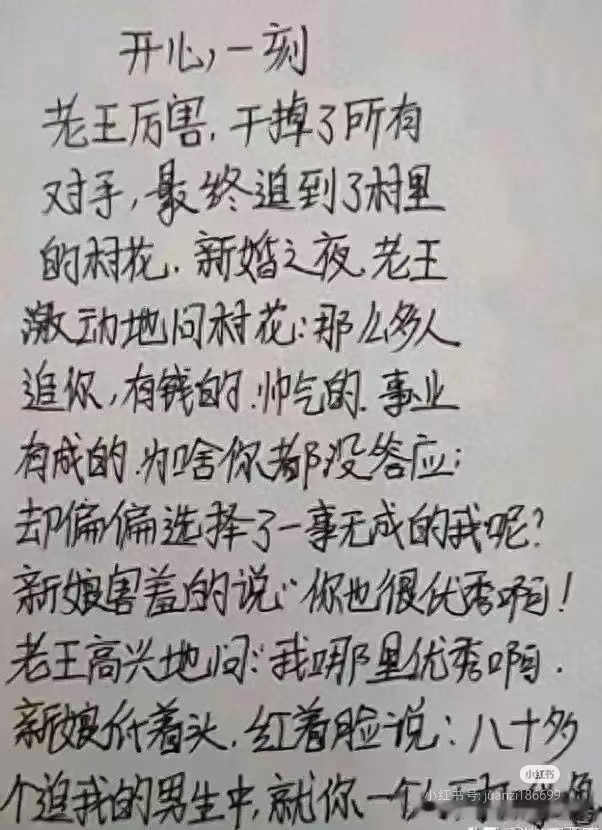 开心一刻
老王厉害,干掉了所有
对手,最终追到了村里
的村花.新婚之夜.老王
激动地问村花:那么多人
追你,有钱的.帅气的.事业
有成的.为啥你都没答应;
却偏偏选择了一事无成的我呢?
新娘害羞的说:“你也很优秀啊!
老王高兴地问:“我哪里优秀啊.
新娘低着头.红着脸说:八十多
个追我的男生中,就你一个
小红书
小红书号: juanzi186699